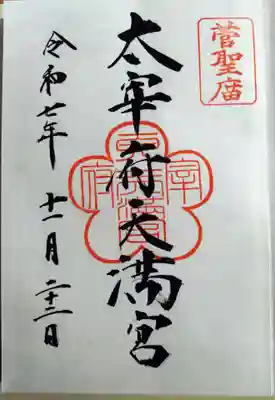 菅聖廟
太宰府天満宮
令和七年 十一月 二十二日